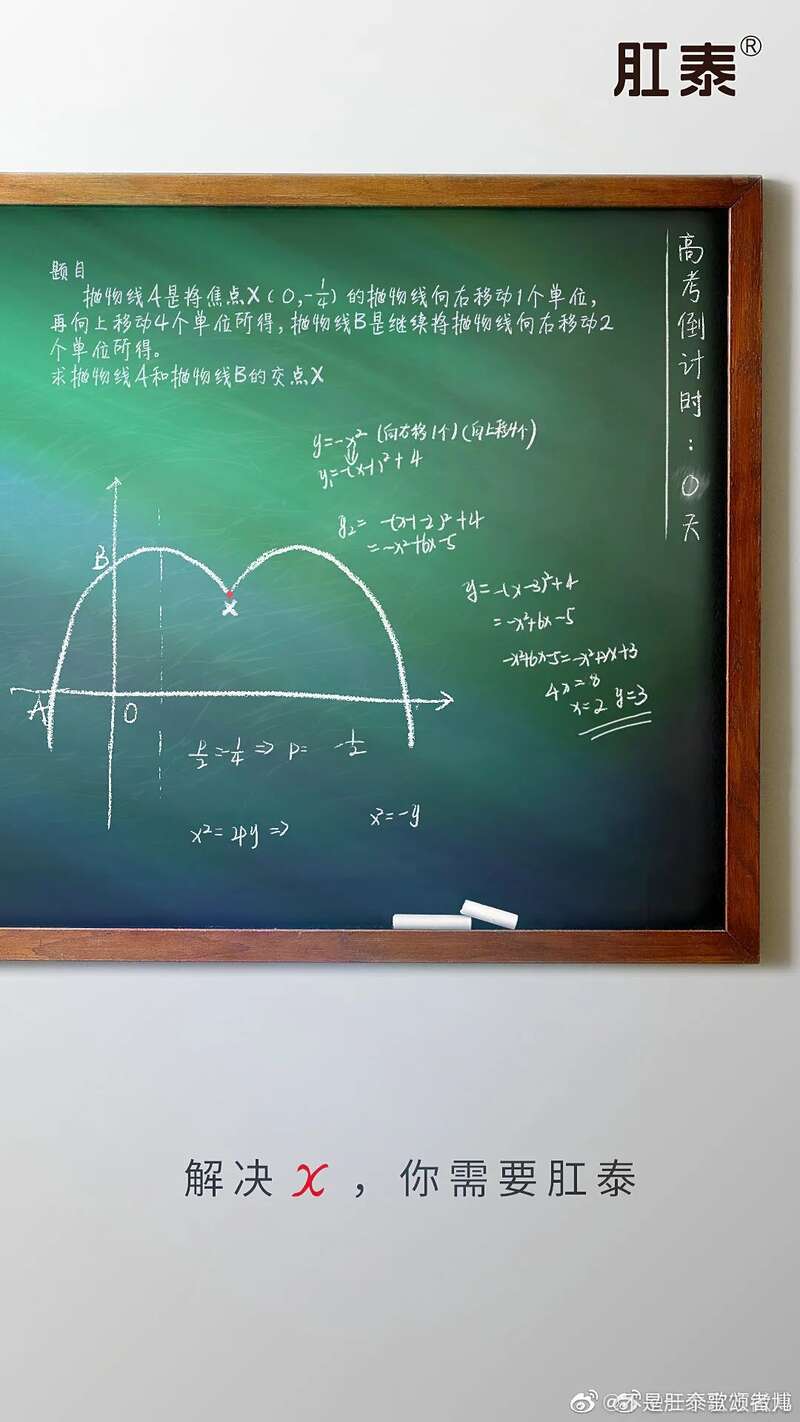 肛泰®
题目
抛物线A是将焦点X(0,-1/4)的抛物线向右移动1个单位,
再向上移动4个单位所得,抛物线B是继续将抛物线向右移动2
个单位所得。
求抛物线A和抛物线B的交点X
高考倒计时:0天
y=-x² (向右移1个)(向上移4个)
y₁=-(x-1)²+4
y₂= -(x-1-2)²+4
=-x²+6x-5
y=-(x-3)²+4
=-x²+6x-5
-x²+6x-5=-x²+2x+3
4x=8
x=2 y=3
B
X
A
O
p/2=1/4 => p= -1/2
x²=2py => x²=-y
解决x,你需要肛泰